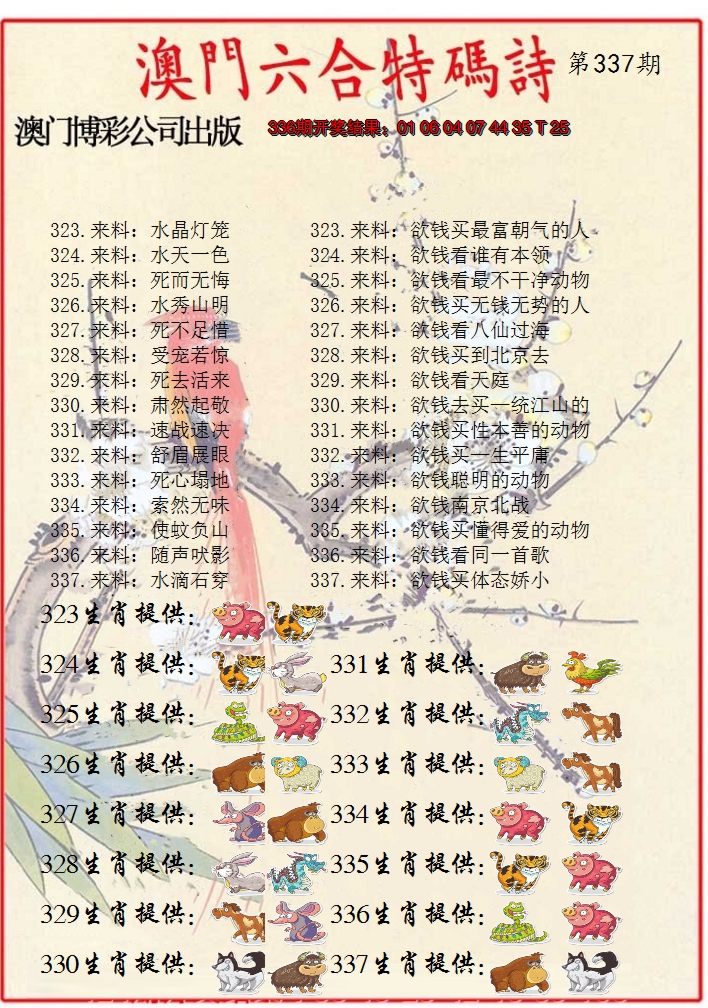 澳門六合特碼詩 第337期
澳门博彩公司出版 336期开奖结果：01 06 04 07 44 35 T 25
323.来料：水晶灯笼 323.来料：欲钱买最富朝气的人
324.来料：水天一色 324.来料：欲钱看谁有本领
325.来料：死而无悔 325.来料：欲钱看最不干净动物
326.来料：水秀山明 326.来料：欲钱买无钱无势的人
327.来料：死不足惜 327.来料：欲钱看八仙过海
328.来料：受宠若惊 328.来料：欲钱买到北京去
329.来料：死去活来 329.来料：欲钱看天庭
330.来料：肃然起敬 330.来料：欲钱去买一统江山的
331.来料：速战速决 331.来料：欲钱买性本善的动物
332.来料：舒眉展眼 332.来料：欲钱买一生平庸
333.来料：死心塌地 333.来料：欲钱聪明的动物
334.来料：索然无味 334.来料：欲钱南京北战
335.来料：使蚊负山 335.来料：欲钱买懂得爱的动物
336.来料：随声吠影 336.来料：欲钱看同一首歌
337.来料：水滴石穿 337.来料：欲钱买体态娇小
323生肖提供：
324生肖提供： 331生肖提供：
325生肖提供： 332生肖提供：
326生肖提供： 333生肖提供：
327生肖提供： 334生肖提供：
328生肖提供： 335生肖提供：
329生肖提供： 336生肖提供：
330生肖提供： 337生肖提供：